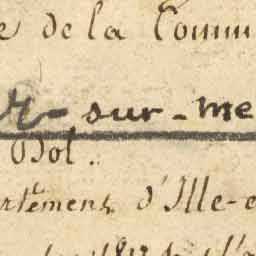 e de la Comm
r-sur-me
Dol.
rtement d'Ille-e